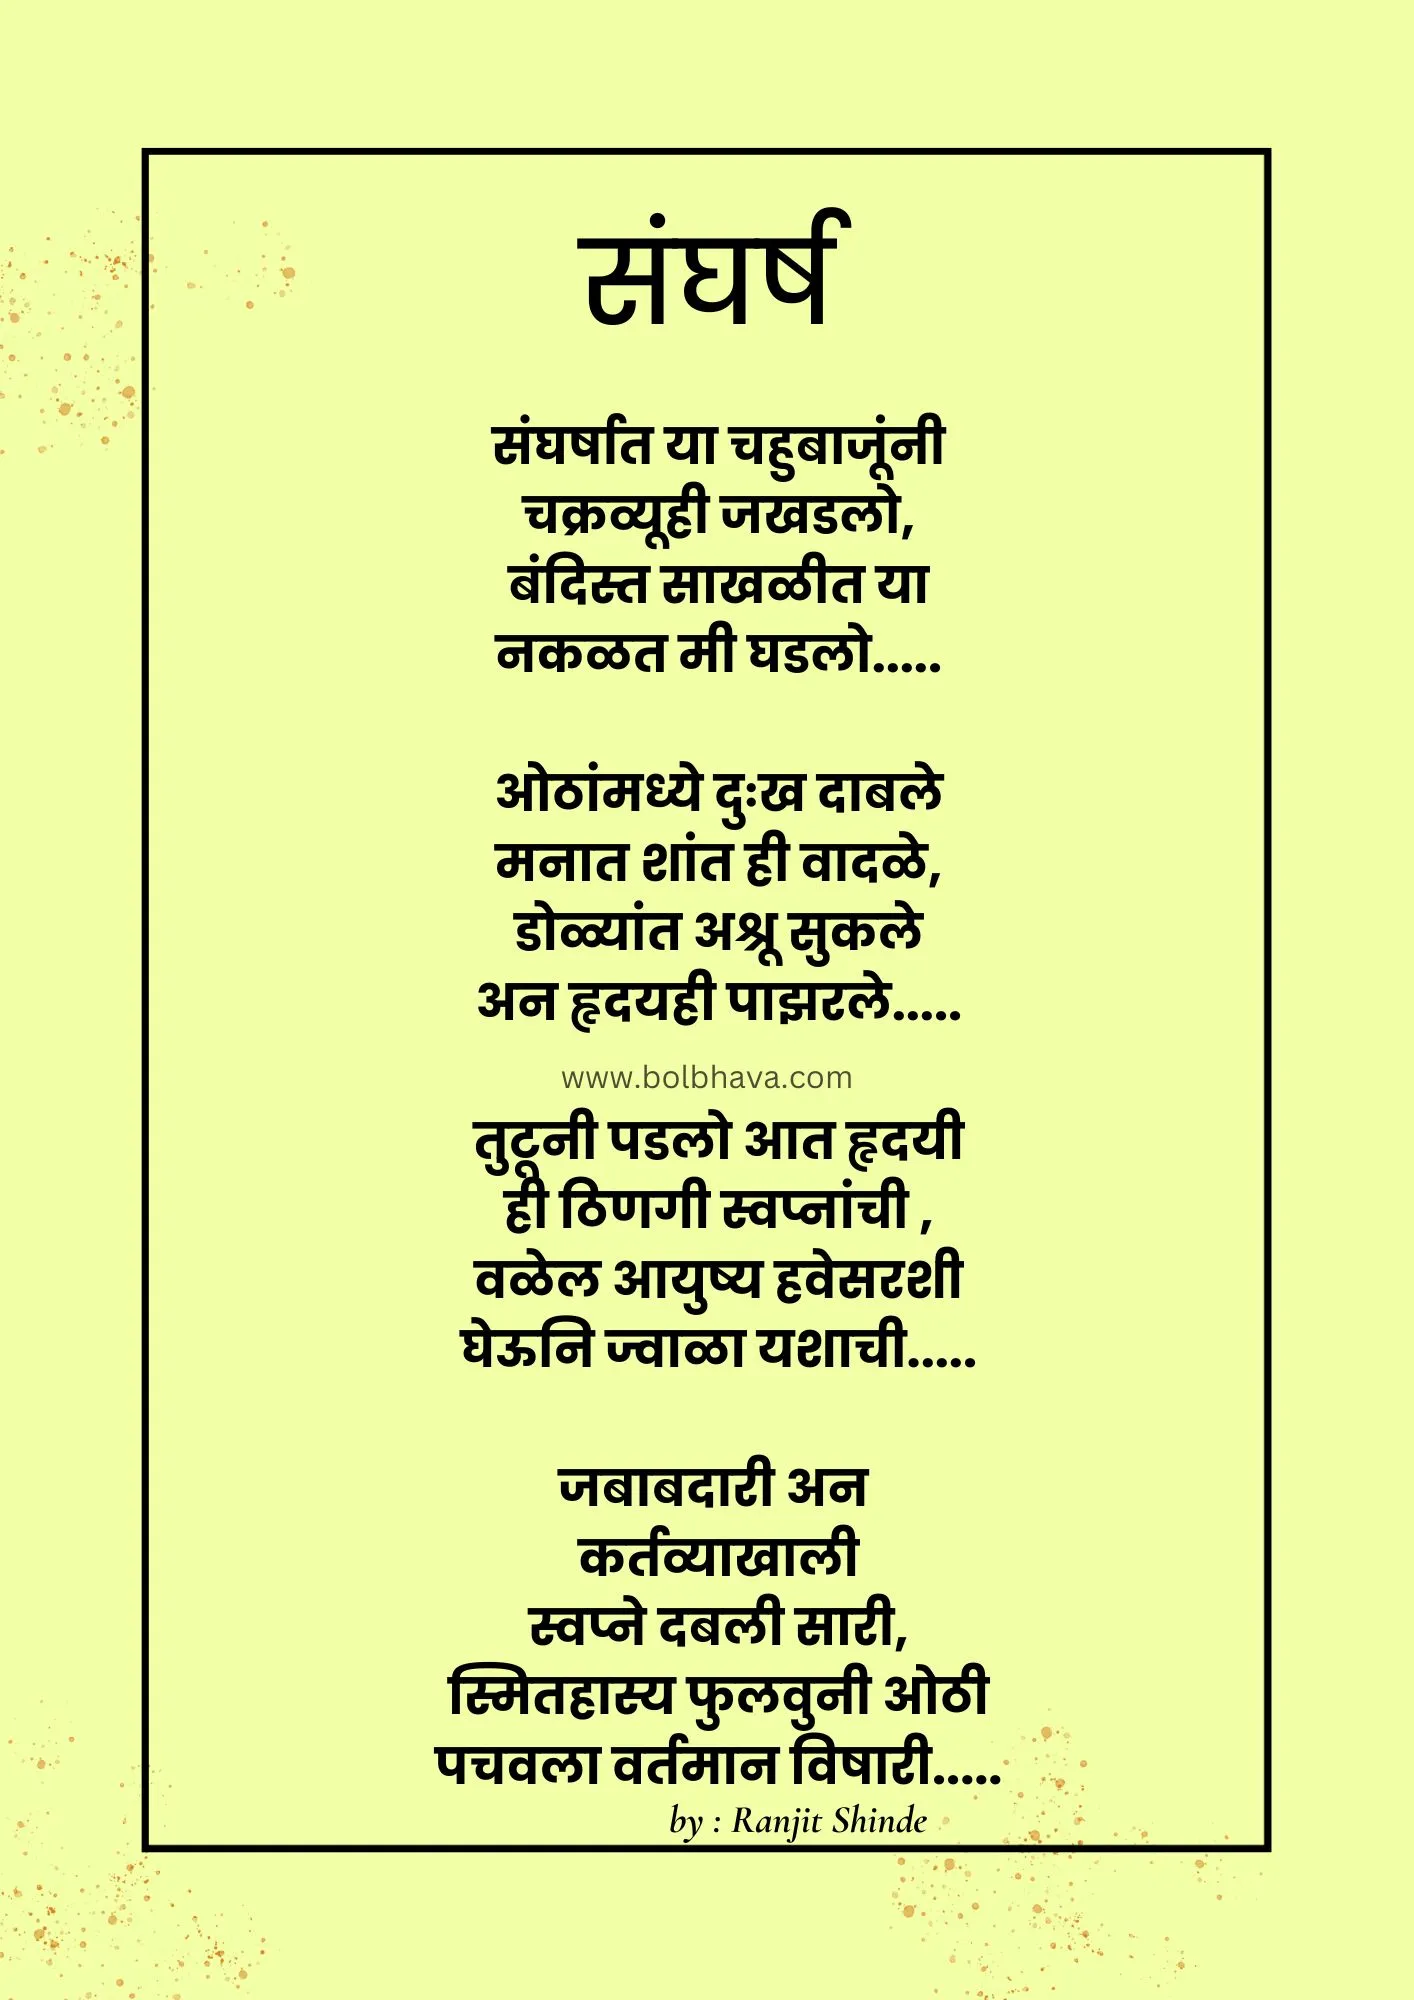 संघर्ष
संघर्षात या चहुबाजूंनी
चक्रव्यूही जखडलो,
बंदिस्त साखळीत या
नकळत मी घडलो.....
ओठांमध्ये दुःख दाबले
मनात शांत ही वादळे,
डोळ्यांत अश्रू सुकले
अन हृदयही पाझरले.....
www.bolbhava.com
तुटूनी पडलो आत हृदयी
ही ठिणगी स्वप्नांची ,
वळेल आयुष्य हवेसरशी
घेऊनि ज्वाळा यशाची.....
जबाबदारी अन
कर्तव्याखाली
स्वप्ने दबली सारी,
स्मितहास्य फुलवुनी ओठी
पचवला वर्तमान विषारी.....
by : Ranjit Shinde